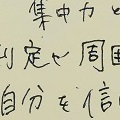 集中力と
判定や周囲
自分を信